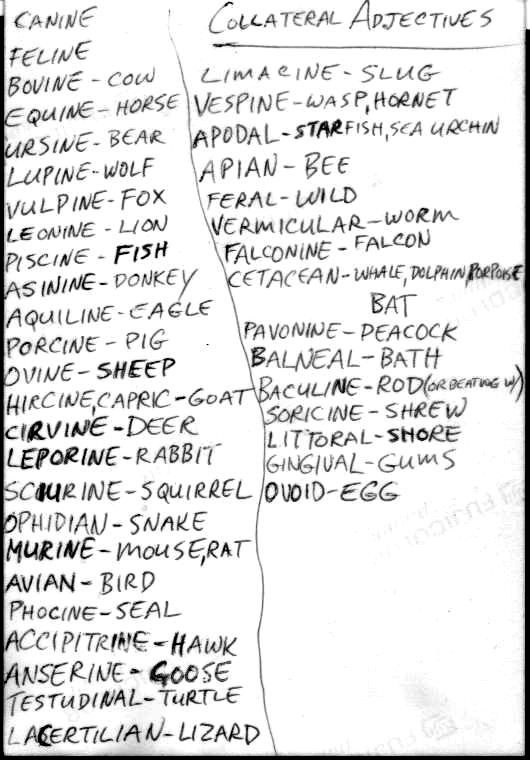 CANINE
FELINE
BOVINE - COW
EQUINE - HORSE
URSINE - BEAR
LUPINE - WOLF
VULPINE - FOX
LEONINE - LION
PISCINE - FISH
ASININE - DONKEY
AQUILINE - EAGLE
PORCINE - PIG
OVINE - SHEEP
HIRCINE, CAPRIC - GOAT
CIRVINE - DEER
LEPORINE - RABBIT
SCIURINE - SQUIRREL
OPHIDIAN - SNAKE
MURINE - MOUSE, RAT
AVIAN - BIRD
PHOCINE - SEAL
ACCIPITRINE - HAWK
ANSERINE - GOOSE
TESTUDINAL - TURTLE
LACERTILIAN - LIZARD
COLLATERAL ADJECTIVES
LIMACINE - SLUG
VESPINE - WASP, HORNET
APODAL - STARFISH, SEA URCHIN
APIAN - BEE
FERAL - WILD
VERMICULAR - WORM
FALCONINE - FALCON
CETACEAN - WHALE, DOLPHIN, PORPOISE
BAT
PAVONINE - PEACOCK
BALNEAL - BATH
BACULINE - ROD (OR BEATING W/)
SORICINE - SHREW
LITTORAL - SHORE
GINGIVAL - GUMS
OVOID - EGG